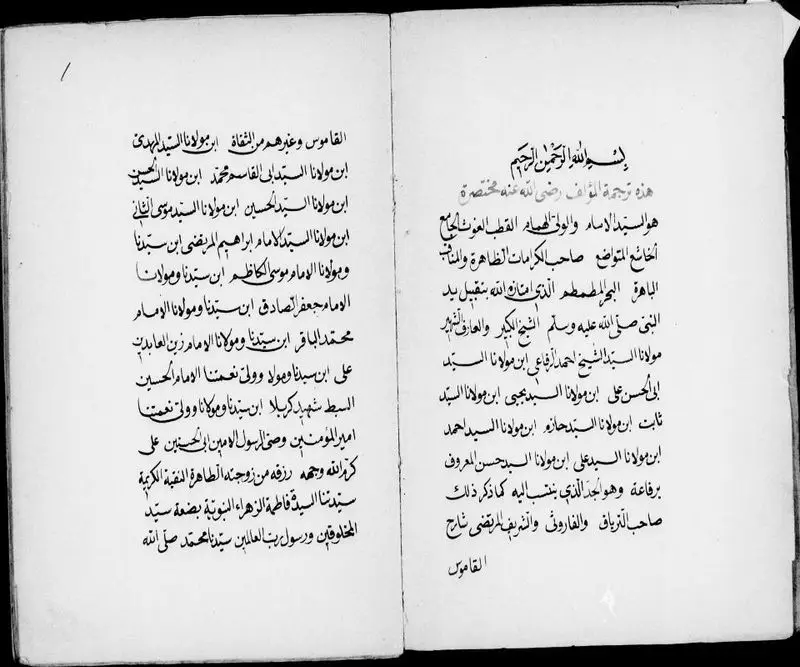 بسم الله الرحمن الرحيم
هذه ترجمة المؤلف رضى الله عنه مختصرة
هو السيد الامام والولى الهمام القطب الغوث الجامع
الخاشع المتواضع صاحب الكرامات الظاهرة والمناقب
الباهرة البحر المطمطم الذى امتازه الله بتقبيل يد
النبى صلى الله عليه وسلم الشيخ الكبير والعارف الشهير
مولانا السيد الشيخ احمد الرفاعى ابن مولانا السيد
ابى الحسن على ابن مولانا السيد يحيى ابن مولانا السيد
ثابت ابن مولانا السيد حازم ابن مولانا السيد احمد
ابن مولانا السيد على ابن مولانا السيد حسن المعروف
برفاعة وهو الجد الذى ينتسب اليه كما ذكر ذلك
صاحب الترياق والفاروثى والشريف المرتضى شارح
القاموس
١
القاموس وغيرهم من الثقاة ابن مولانا السيد المهدى
ابن مولانا السيد ابى القاسم محمد ابن مولانا السيد الحسن
ابن مولانا السيد الحسين ابن مولانا السيد موسى الثانى
ابن مولانا السيد الامام ابراهيم المرتضى ابن سيدنا
ومولانا الامام موسى الكاظم ابن سيدنا ومولانا
الامام جعفر الصادق ابن سيدنا ومولانا الامام
محمد الباقر ابن سيدنا ومولانا الامام زين العابدين
على ابن سيدنا ومولا وولى نعمتنا الامام الحسين
السبط شهيد كربلا ابن سيدنا ومولانا وولى نعمتنا
امير المؤمنين وصى الرسول الامين ابى الحسنين على
كرم الله وجهه رزقه من زوجته الطاهرة النقية الكريمة
سيدتنا السيدة فاطمة الزهراء النبوية بضعة سيد
المخلوقين ورسول رب العالمين سيدنا محمد صلى الله